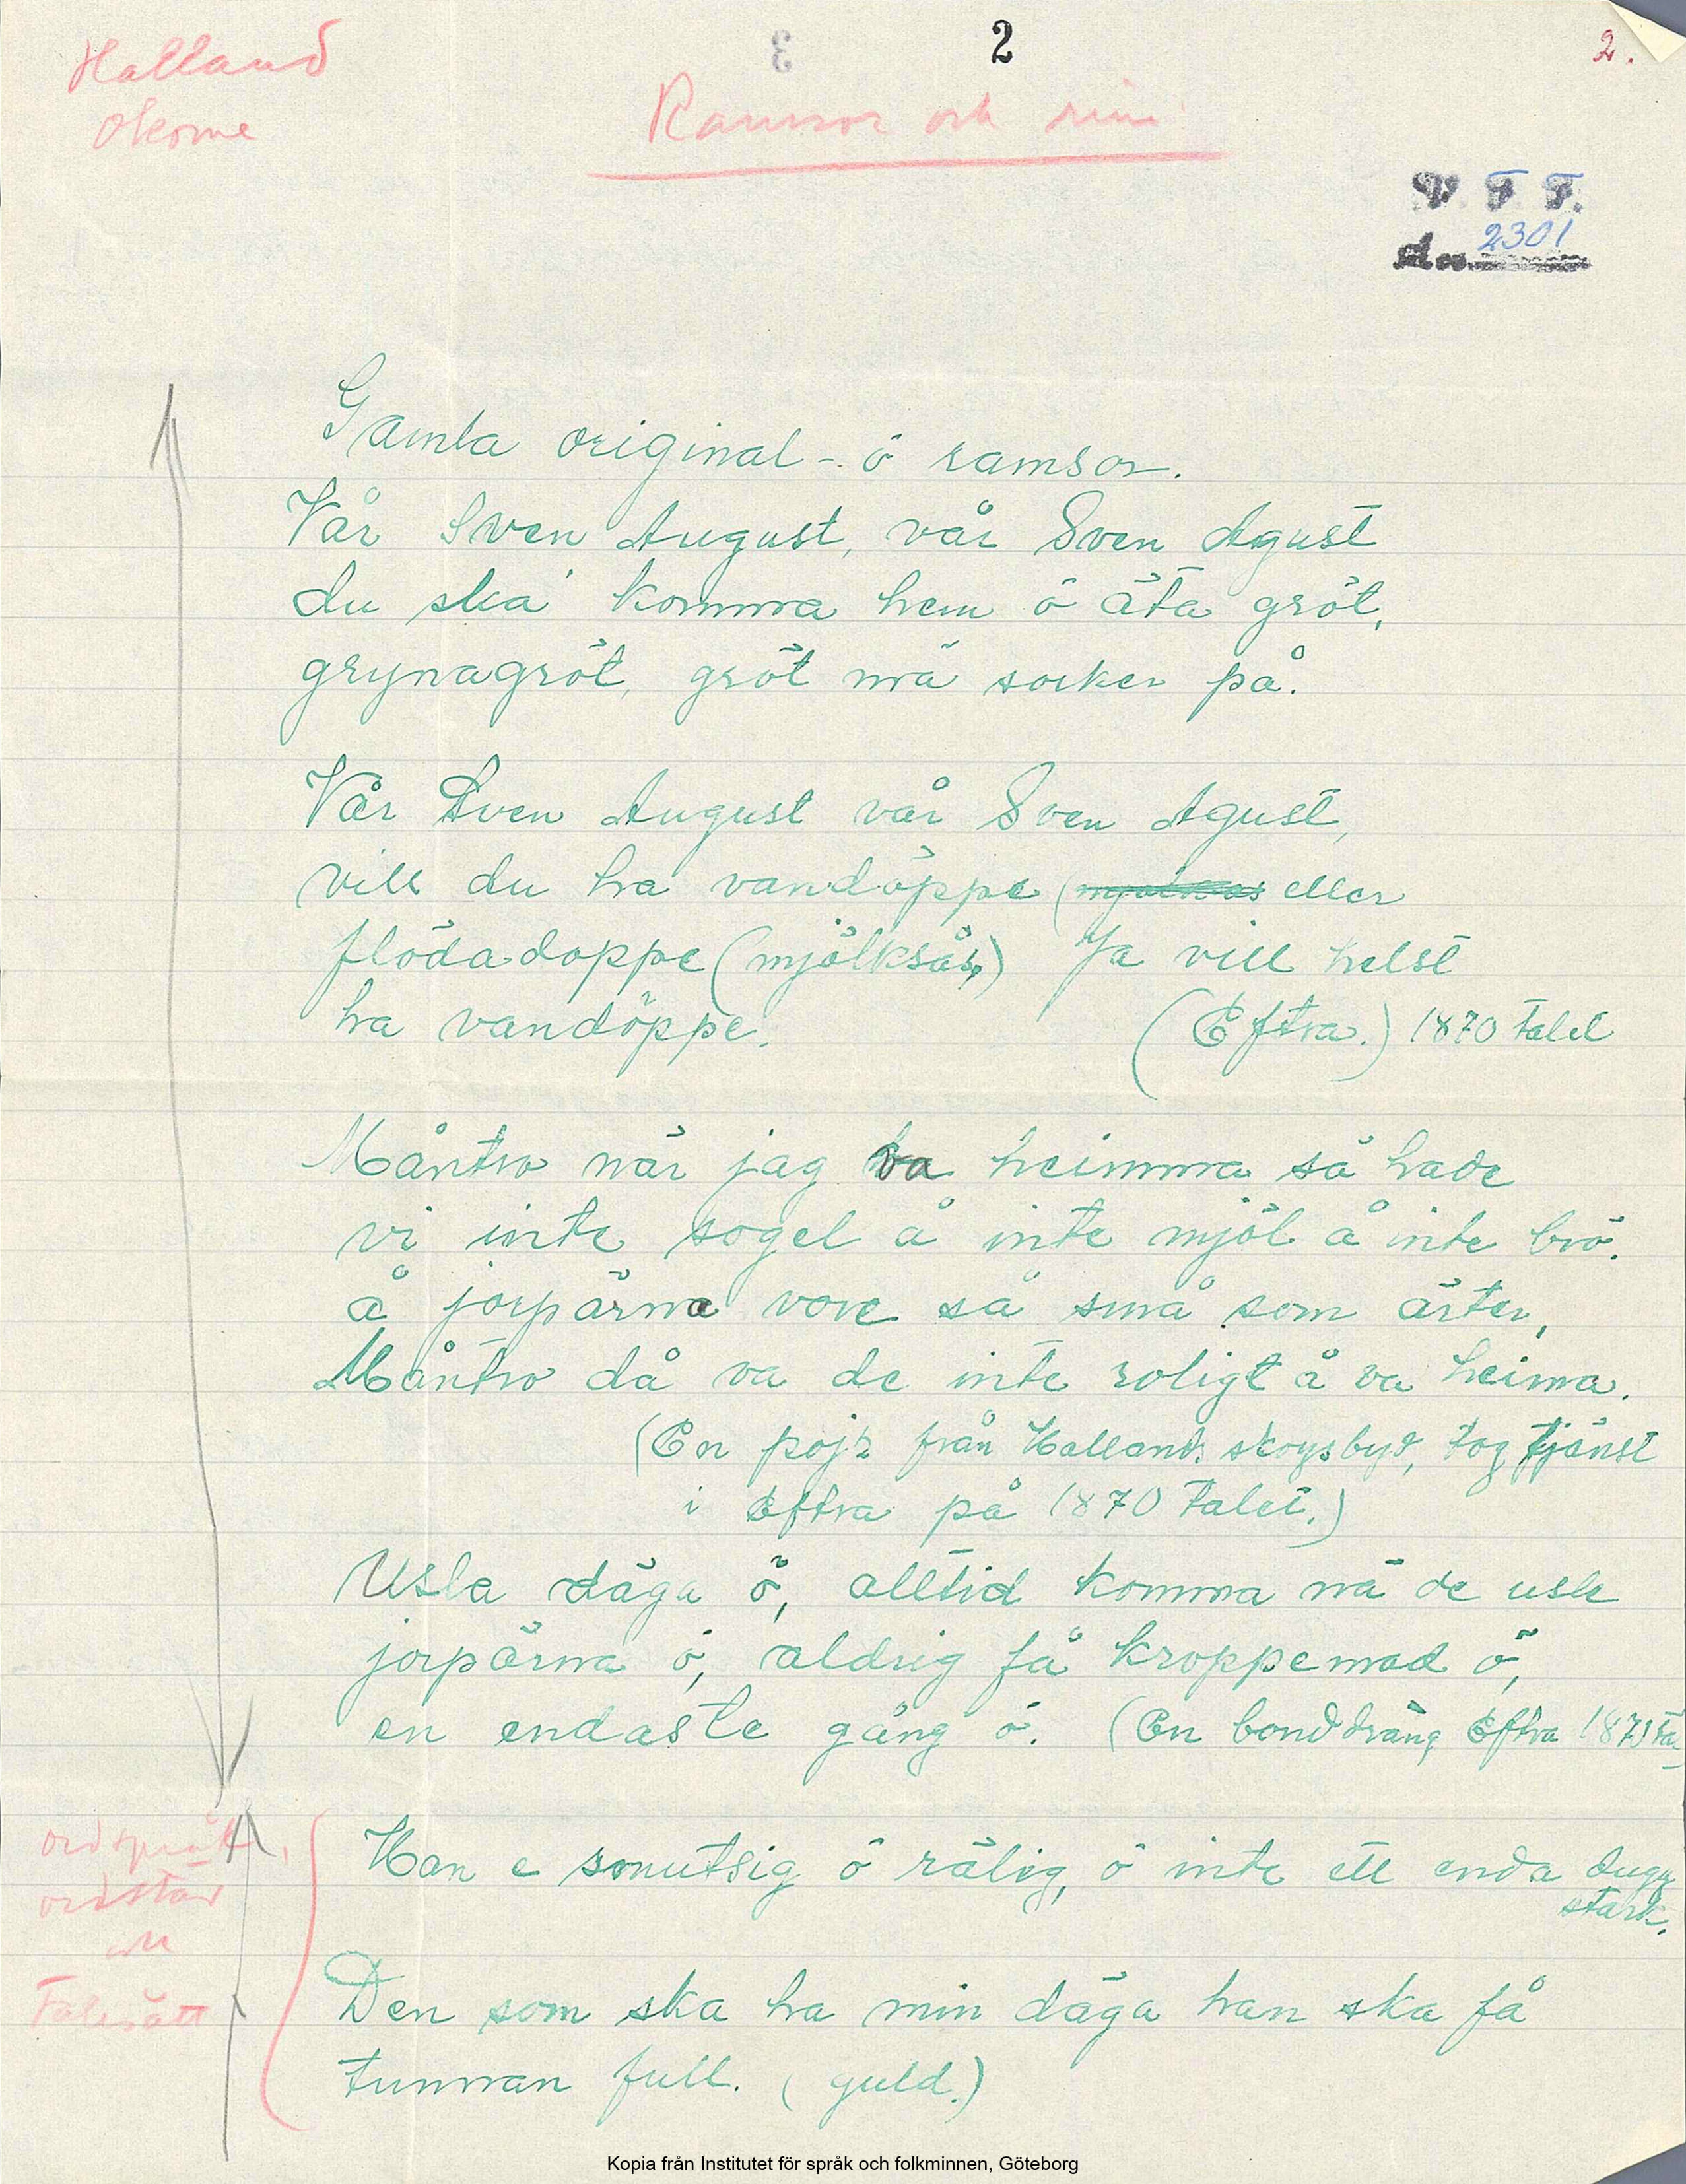 Halland
Okome
3
2
2.
Ramsor och rim
V. F. F.
2301
Gamla original - ö ramsor.
Vår Sven August, vår Sven Agust
du ska komma hem ö äta gröt,
grynagröt, gröt mä socker på.
Vår Sven August vår Sven Agust,
vill du ha vandöppe ( eller
flödadoppe (mjölksås,) Ja vill helst
ha vandöppe. (Eftra.) 1870 talet
Måntro när jag va heimma så hade
vi inte sogel å inte mjöl å inte brö.
å jorpärna vore så små som ärter,
Måntro då va de inte roligt å va heima.
(En pojk från Hallands skogsbyd, tog tjänst
i Eftra på 1870 talet.)
Usla däga ö, alltid komma mä de usle
jorpärna ö, aldrig få kroppemad ö,
en endaste gång ö. (En bonddräng Eftra 1870 ta-
ordspråk,
ordstäv
och
Talesätt
Han e smutsig ö rälig, ö inte ett enda dugg
stark.
Den som ska ha min däga han ska få
tunnan full. (guld.)
Kopia från Institutet för språk och folkminnen, Göteborg